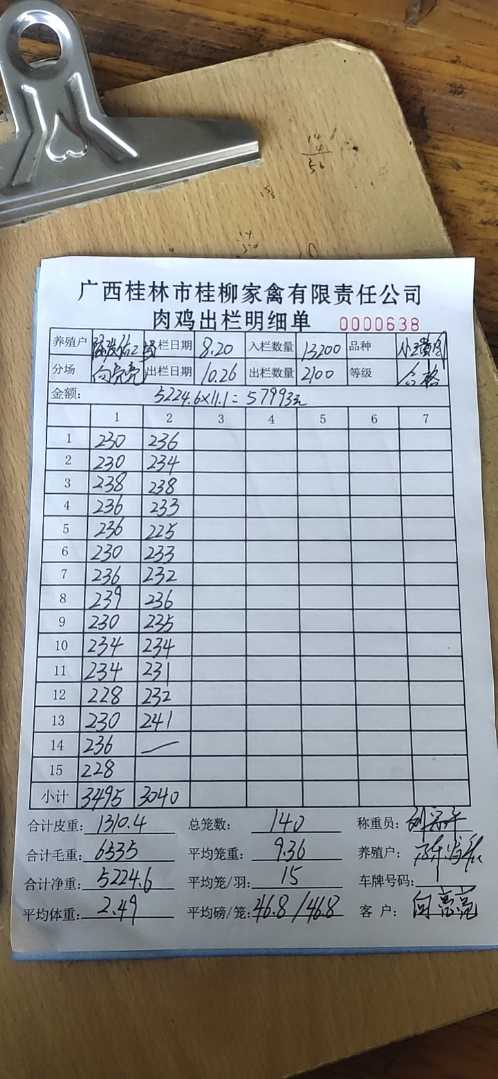 广西桂林市桂柳家禽有限责任公司
肉鸡出栏明细单 0000638
养殖户 栏日期 8.20 入栏数量 13200 品种
分场 向亮亮 出栏日期 10.26 出栏数量 2100 等级 合格
金额: 5224.6×11.1=57993元
1 2 3 4 5 6 7
1 230 236
2 230 234
3 238 238
4 236 233
5 236 225
6 230 233
7 236 232
8 239 236
9 230 235
10 234 234
11 234 231
12 228 232
13 230 241
14 236 —
15 228
小计 3495 3040
合计皮重: 1310.4 总笼数: 140 称重员:
合计毛重: 6535 平均笼重: 9.36 养殖户:
合计净重: 5224.6 平均笼/羽: 15 车牌号码:
平均体重: 2.49 平均磅/笼: 46.8/46.8 客户: 向亮亮